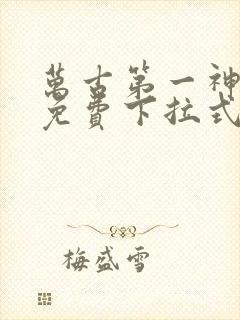 萬古第一神
免費下拉式
梅盛雪